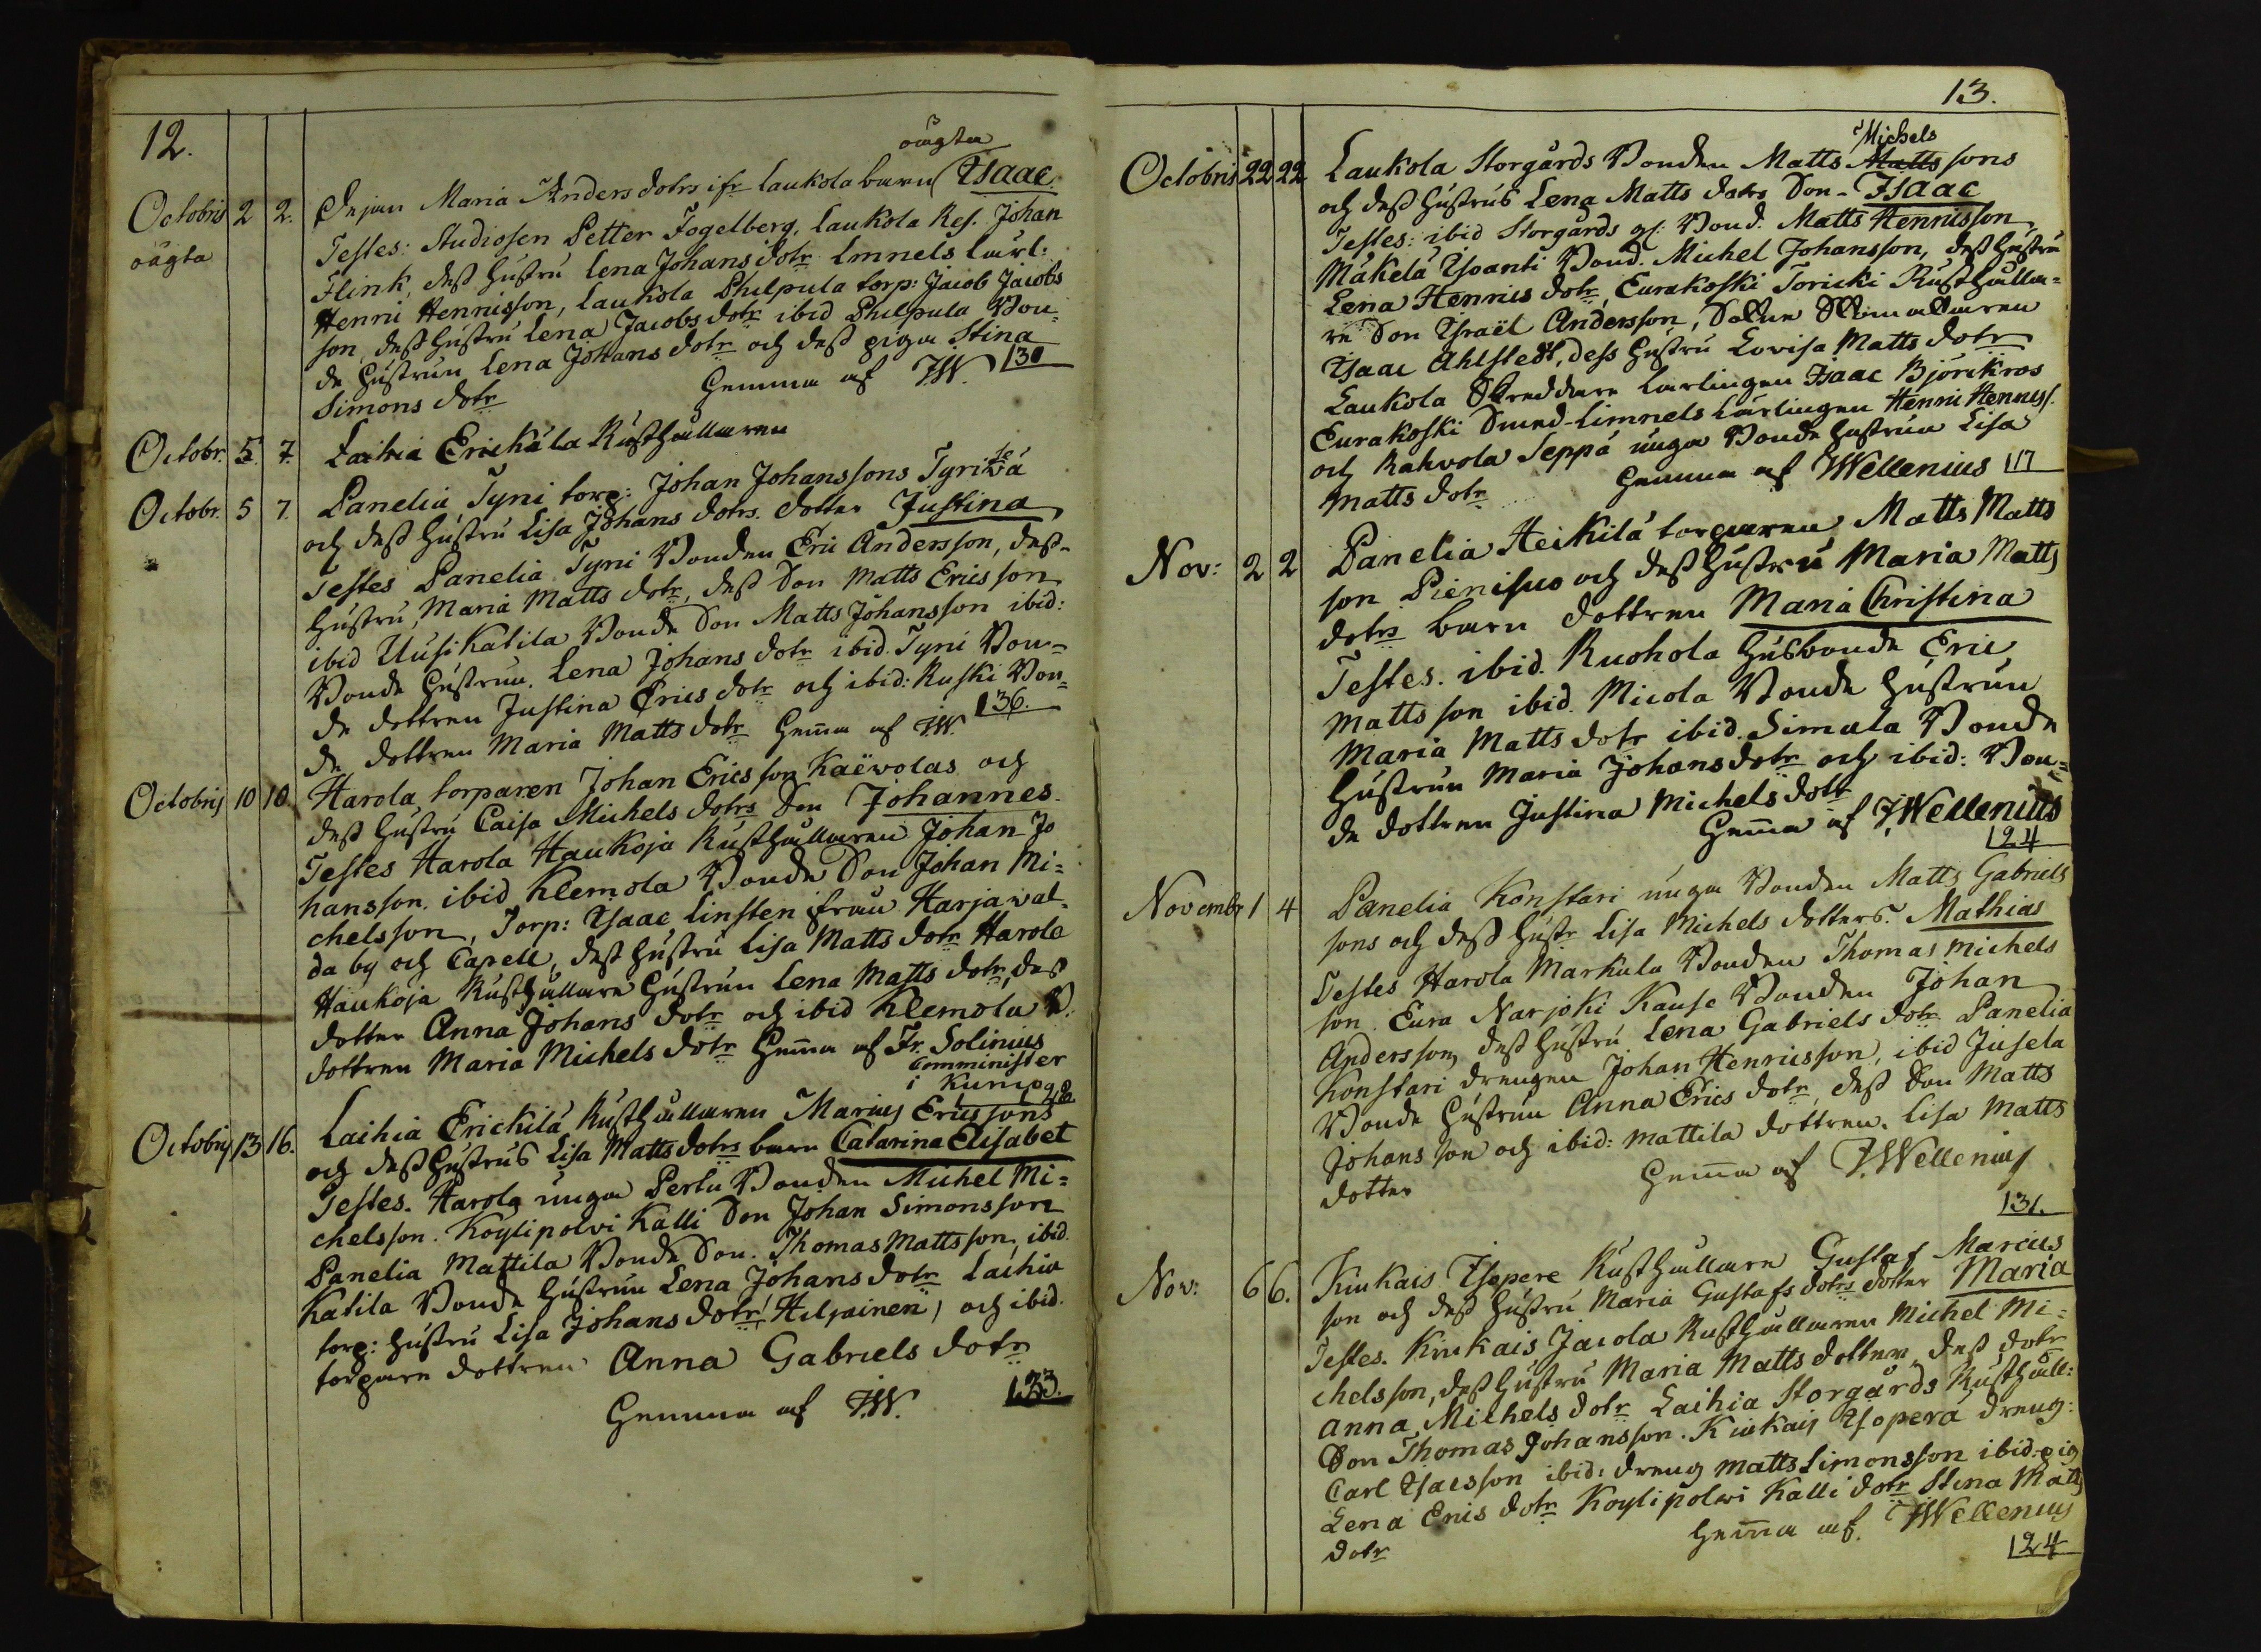 12.
oägta
Octobris 2 2. Pejan Maria Anders dotrs ifr Laukola barn Isaac
oägta Testes: Studiosen Petter Fogelberg, Laukola Ref. Johan
Flink, dess hustru Lena Johans dotr Limnels Lärl:
Henric Henricsson, Laukola Philpula torp: Jacob Jacobs
son, dess hustru Lena Jacobs dotr ibid Philpula Bon-
de hustrun Lena Johans dotr och dess piga Stina
Simons dotr Hemma af J.W. 30
Octobr. 5. 7. Laihia Erickälä Rusthållaren
Octobr. 5 7. Panelia Tyni torp: Johan Johanssons
och dess hustru Lisa Johans dotrs. dotter Justina
Testes Panelia Tyni Bonden Eric Andersson, dess
hustru, Maria Matts dotr, dess Son Matts Ericsson
ibid Uusikatila Bonde Son Matts Johansson ibid:
Bonde hustrun. Lena Johans dotr ibid. Tyni Bon-
de dottren Justina Erics dotr och ibid: Ruski Bon-
de dottren Maria Matts dotr Hemma af J.W. 36.
Octobris 10 10. Harola torparen Johan Ericsson Kaëvolas och
dess hustru Caisa Michels dotrs Son Johannes.
Testes Harola Haukoja Rusthållaren Johan Jo
hansson. ibid Klemola Bonde Son Johan Mi-
chelsson, Torp: Isaac Linsten ifrån Harjaval-
da by och Capell, dess hustru Lisa Matts dotr Harola
Haukoja Rusthållare hustrun Lena Matts dotr, dess
dotter Anna Johans dotr och ibid Klemola B.
dottren Maria Michels dotr Hemma af Fr. Solinius
Comminister
i Kumo 28.
Octobris 13 16. Laihia Erickilä Rusthållaren Marius Ericssons
och dess hustrus Lisa Matts dotrs barn Catarina Elisabet
Testes. Harola unga Perlu Bonden Michel Mi-
chelsson. Köylipolvi Kalli Son Johan Simonsson
Panelia Mattila Bonde Son. Thomas Mattsson, ibid.
Katila Bonde hustrun Lena Johans dotr Laihia
torp: hustru Lisa Johans dotr (Hiljainen) och ibid.
torpare dottren Anna Gabriels dotr
Hemma af J.W. 33.
13.
Michels
Octobris 22 22 Laukola Storgårds Bonden Matts Matts sons
och dess hustrus Lena Matts dotrs Son Isaac
Testes: ibid Storgårds gf: Bond. Matts Henricsson,
Mäkelä Isoanti Bond. Michel Johansson, dess hustru
Lena Henrics dotr, Eurakoski Toricki Rusthålla-
re Son Israël Andersson,
Isaac Ahlstedt, dess hustru Lovisa Matts dotr
Laukola Skreddare Lärlingen Isaac Björikros
Eurakoski Smed-Limnels Lärlingen Henric Henricss.
och Kahvola Seppä unga Bonde hustrun Lisa
Matts dotr Hemma af J Wellenius 17
Nov: 2 2 Panelia Heikilä torparen Matts Matts
son Pienisuo och dess hustru Maria Matts
dotrs barn dottren Maria Christina
Testes. ibid. Ruohola husbonde Eric
Mattsson ibid. Micola Bonde hustrun
Maria Matts dotr ibid. Simula Bonde
hustrun Maria Johans dotr och ibid: Bon-
de dottren Justina Michels dotr
Hemma af J Wellenius
24
Novembr 1 4 Panelia Konstari unga Bonden Matts Gabriels
sons och dess hustr Lisa Michels dotters. Mathias
Testes Harola Markula Bonden Thomas Michels
son. Eura Narjoki Kause Bonden Johan
Andersson, dess hustru Lena Gabriels dotr Panelia
Konstari drengen Johan Henricsson, ibid Jusela
Bonde hustrun Anna Erics dotr, dess Son Matts
Johansson och ibid: Mattila dottren. Lisa Matts
dotter Hemma af J Wellenius
31.
Nov: 6 6. Kiukais Isopere Rusthållare Gustaf Marcus
son och dess hustru Maria Gustafs dotrs dotter Maria
Testes. Kiukais Jacola Rusthållaren Michel Mi-
chelsson, dess hustru Maria Matts dotter dess dotr
Anna Michels dotr Laihia Storgårds Rusthåll:
Son Thomas Johansson. Kiukais Isoperä dreng:
Carl Isacsson ibid: dreng Matts Simonsson ibid: pig
Lena Erics dotr Koylipolwi Kalli dotr Stina Matts
dotr Hemma af. J Wellenius
24